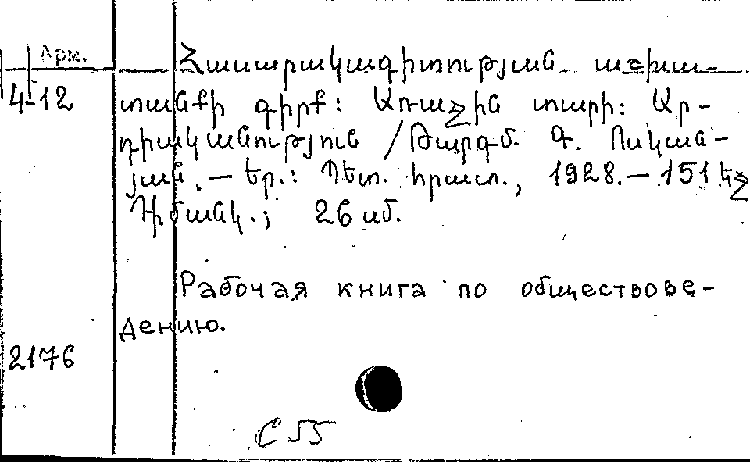 Арм.
Հասարակագիտության աշխա-
4-12 տանքի գիրք: Առաջին տարի: Ար-
դյունաբերություն / Թարգմ. Գ. Ոսկան-
յան. — Եր.: Պետ. հրատ., 1928. — 151 էջ
Դիմանկ.; 26 սմ.
Рабочая книга по обществове-
дению.
2176
C 55